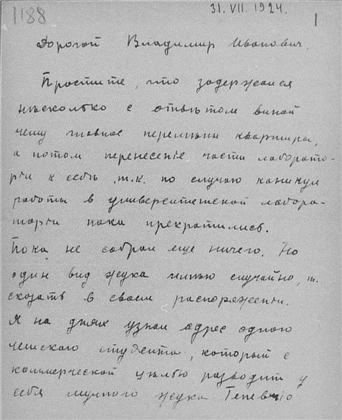 1188
31.VII.1924.
1
Дорогой Владимир Иванович.
Простите, что задержался
нѣсколько с отвѣтом виной
чему главное перемѣна квартиры,
а потом перенесеніе части лаборато-
ріи к себѣ, т.к. по случаю каникул
работы в университетской лабора-
торіи пока прекратились.
Пока не собрал еще ничего. Но
один вид жука имѣю случайно, т.
сказать в своем распоряженіи.
Я на днях узнал адрес одного
чешского студента, который с
коммерческой цѣлью разводит у
себя мучного жука Тенебріо